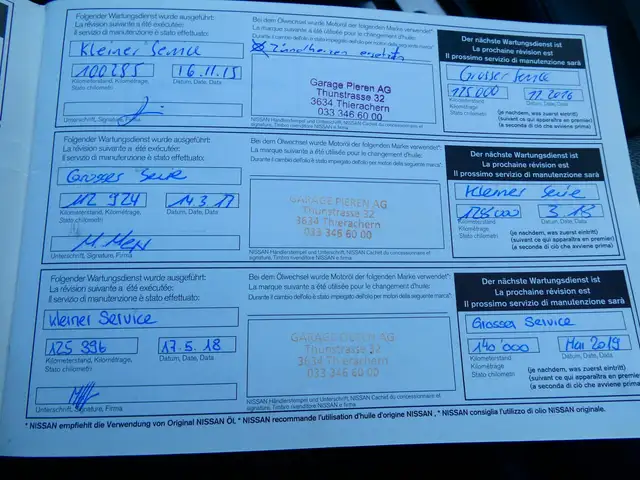 Folgender Wartungsdienst wurde ausgeführt:
La révision suivante a été exécutée:
Il servizio di manutenzione è stato effettuato:
Kleiner Service
100285 16.11.15
Kilometerstand, Kilométrage, Datum, Date, Data
Stato chilometri
Unterschrift, Signature, Firma
Bei dem Ölwechsel wurde Motoröl der folgenden Marke verwendet*:
La marque suivante a été utilisée pour le changement d'huile:
Durante il cambio dell'olio è stato impiegato dell'olio per motori della seguente marca*:
Zündkerzen ersetzt
Garage Pieren AG
Thunstrasse 32
3634 Thierachern
033 346 60 00
NISSAN Händlerstempel und Unterschrift, NISSAN Cachet du concessionnaire et
signature, Timbro rivenditore NISSAN e firma
Der nächste Wartungsdienst ist
La prochaine révision est
Il prossimo servizio di manutenzione sarà
Grosser Service
115000 11.2016
Kilometerstand Datum, Date, Data
Kilométrage
Stato chilometri
(je nachdem, was zuerst eintrifft)
(suivant ce qui apparaîtra en premier)
(a seconda di ciò che avviene prima)
Folgender Wartungsdienst wurde ausgeführt:
La révision suivante a été exécutée:
Il servizio di manutenzione è stato effettuato:
Grosses Service
112 924 14 3 17
Kilometerstand, Kilométrage, Datum, Date, Data
Stato chilometri
Unterschrift, Signature, Firma
Bei dem Ölwechsel wurde Motoröl der folgenden Marke verwendet*:
La marque suivante a été utilisée pour le changement d'huile:
Durante il cambio dell'olio è stato impiegato dell'olio per motori della seguente marca*:
GARAGE PIEREN AG
Thunstrasse 32
3634 Thierachern
033 346 60 00
NISSAN Händlerstempel und Unterschrift, NISSAN Cachet du concessionnaire et
signature, Timbro rivenditore NISSAN e firma
Der nächste Wartungsdienst ist
La prochaine révision est
Il prossimo servizio di manutenzione sarà
Kleiner Service
128000 3.18
Kilometerstand Datum, Date, Data
Kilométrage
Stato chilometri
(je nachdem, was zuerst eintrifft)
(suivant ce qui apparaîtra en premier)
(a seconda di ciò che avviene prima)
Folgender Wartungsdienst wurde ausgeführt:
La révision suivante a été exécutée:
Il servizio di manutenzione è stato effettuato:
Kleiner Service
125 396 17.5.18
Kilometerstand, Kilométrage, Datum, Date, Data
Stato chilometri
Unterschrift, Signature, Firma
Bei dem Ölwechsel wurde Motoröl der folgenden Marke verwendet*:
La marque suivante a été utilisée pour le changement d'huile:
Durante il cambio dell'olio è stato impiegato dell'olio per motori della seguente marca*:
GARAGE PIEREN AG
Thunstrasse 32
3634 Thierachern
033 346 60 00
NISSAN Händlerstempel und Unterschrift, NISSAN Cachet du concessionnaire et
signature, Timbro rivenditore NISSAN e firma
Der nächste Wartungsdienst ist
La prochaine révision est
Il prossimo servizio di manutenzione sarà
Grosser Service
140 000 Mai 2019
Kilometerstand Datum, Date, Data
Kilométrage
Stato chilometri
(je nachdem, was zuerst eintrifft)
(suivant ce qui apparaîtra en premier)
(a seconda di ciò che avviene prima)
* NISSAN empfiehlt die Verwendung von Original NISSAN ÖL * NISSAN recommande l'utilisation d'huile d'origine NISSAN , * NISSAN consiglia l'utilizzo di olio NISSAN originale.